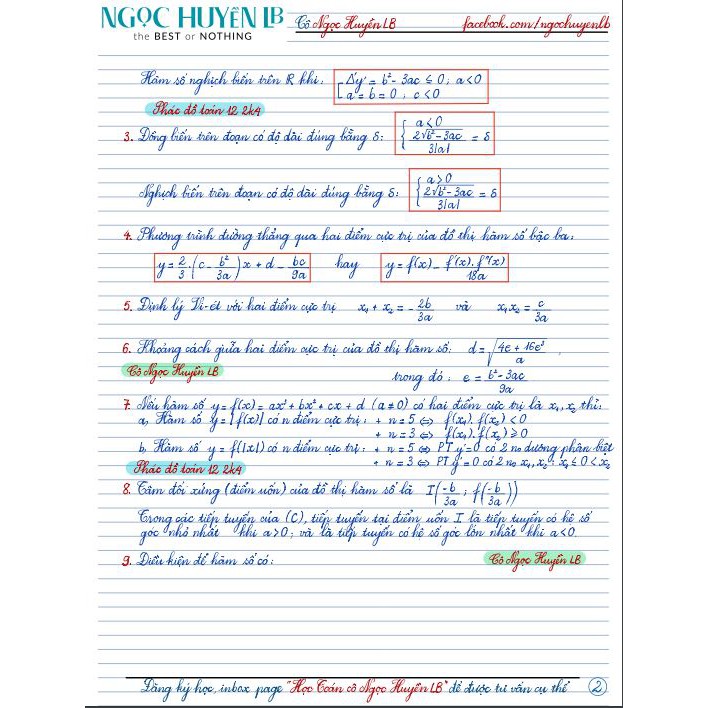 NGỌC HUYỀN LB
the BEST or NOTHING
Cô Ngọc Huyền LB
facebook.com/ngochuyenlb
Hàm số nghịch biến trên R khi: [ Δ'y' = b² - 3ac ≤ 0; a < 0
a = b = 0; c < 0
Phác đồ toán 12 2k4
3. Đồng biến trên đoạn có độ dài đúng bằng δ: { a < 0
2√b² - 3ac / 3|a| = δ
Nghịch biến trên đoạn có độ dài đúng bằng δ: { a > 0
2√b² - 3ac / 3|a| = δ
4. Phương trình đường thẳng qua hai điểm cực trị của đồ thị hàm số bậc ba:
y = 2/3 . (c - b²/3a) x + d - bc/9a hay y = f(x) - f'(x).f''(x) / 18a
5. Định lý Vi-ét với hai điểm cực trị x₁ + x₂ = - 2b/3a và x₁x₂ = c/3a
6. Khoảng cách giữa hai điểm cực trị của đồ thị hàm số: d = √4e + 16e³ / a
Cô Ngọc Huyền LB
trong đó: e = b² - 3ac / 9a
7. Nếu hàm số y = f(x) = ax³ + bx² + cx + d (a ≠ 0) có hai điểm cực trị là x₁, x₂ thì:
a, Hàm số y = |f(x)| có n điểm cực trị: + n = 5 ⇔ f(x₁).f(x₂) < 0
+ n = 3 ⇔ f(x₁).f(x₂) ≥ 0
b, Hàm số y = f(|x|) có n điểm cực trị: + n = 5 ⇔ PT y' = 0 có 2 no dương phân biệt
+ n = 3 ⇔ PT y' = 0 có 2 no x₁, x₂: x₁ ≤ 0 < x₂
Phác đồ toán 12 2k4
8. Tâm đối xứng (điểm uốn) của đồ thị hàm số là I(-b/3a; f(-b/3a))
Trong các tiếp tuyến của (C), tiếp tuyến tại điểm uốn I là tiếp tuyến có hệ số
góc nhỏ nhất khi a > 0; và là tiếp tuyến có hệ số góc lớn nhất khi a < 0.
9. Điều kiện để hàm số có:
Cô Ngọc Huyền LB
Đăng ký học, inbox page "Học Toán cô Ngọc Huyền LB" để được tư vấn cụ thể
2